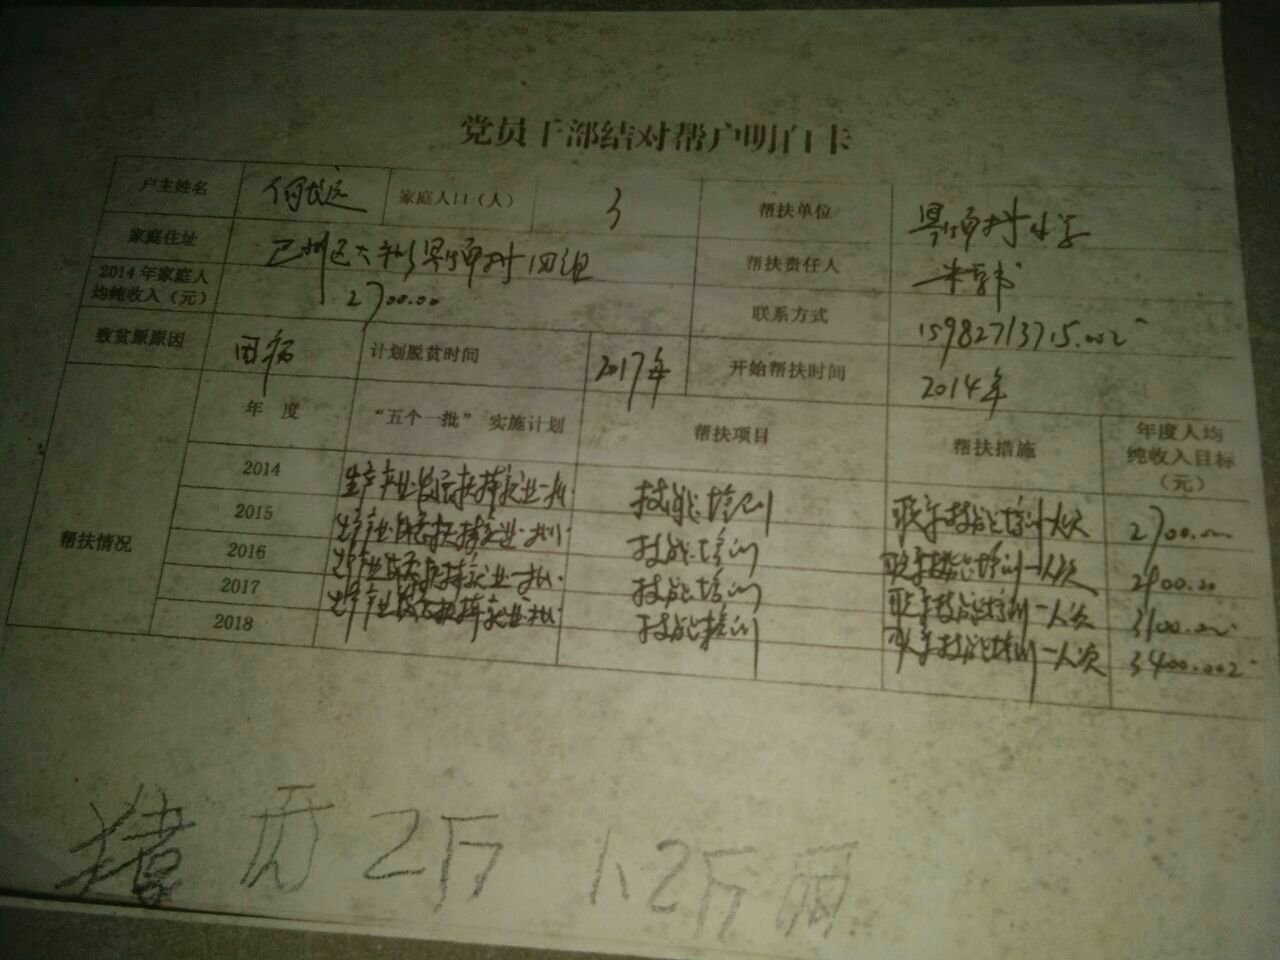 党员干部结对帮户明白卡
户主姓名 何长远 家庭人口（人） 3 帮扶单位 村小学
家庭住址 巴州区大和 村四组 帮扶责任人
2014年家庭人均纯收入（元） 2700.00 联系方式 15982713715
致贫原原因 因病 计划脱贫时间 2017年 开始帮扶时间 2014年
帮扶情况 年 度 “五个一批”实施计划 帮扶项目 帮扶措施 年度人均纯收入目标（元）
2014
2015 生产产业发展扶持就业一批 技能培训 联系技能培训一人次 2700.00
2016 生产产业发展扶持就业一批 技能培训 联系技能培训一人次 2900.00
2017 生产产业发展扶持就业一批 技能培训 联系技能培训一人次 3100.00
2018 生产产业发展扶持就业一批 技能培训 联系技能培训一人次 3400.00
猪 2斤 1.2斤